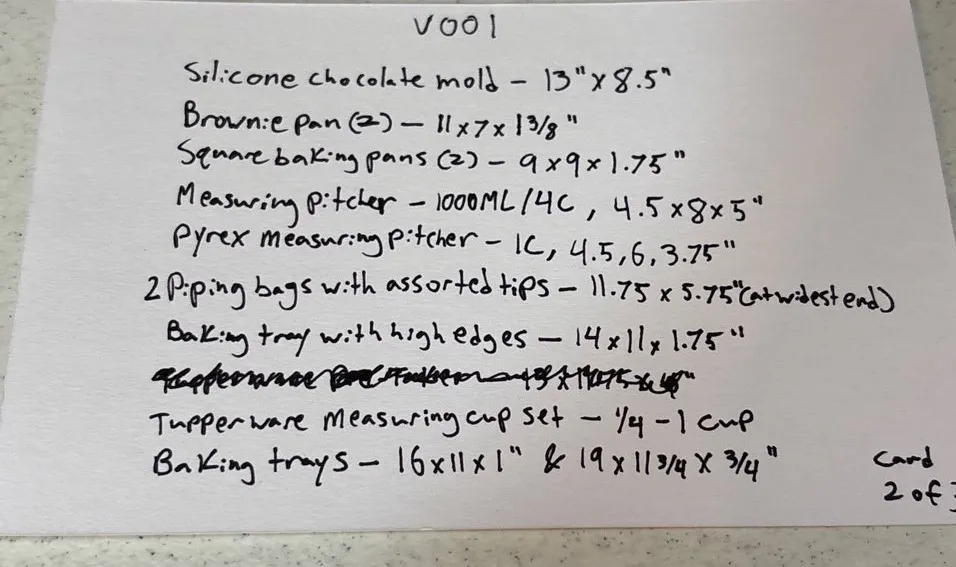 V001
Silicone chocolate mold - 13" x 8.5"
Brownie pan (2) - 11 x 7 x 1 3/8"
Square baking pans (2) - 9 x 9 x 1.75"
Measuring pitcher - 1000ML/4C, 4.5 x 8 x 5"
Pyrex measuring pitcher - 1C, 4.5, 6, 3.75"
2 Piping bags with assorted tips - 11.75 x 5.75" (at widest end)
Baking tray with high edges - 14 x 11 x 1.75"
Tupperware Measuring cup set - 1/4 - 1 cup
Baking trays - 16 x 11 x 1" & 19 x 11 3/4 x 3/4"
Card
2 of